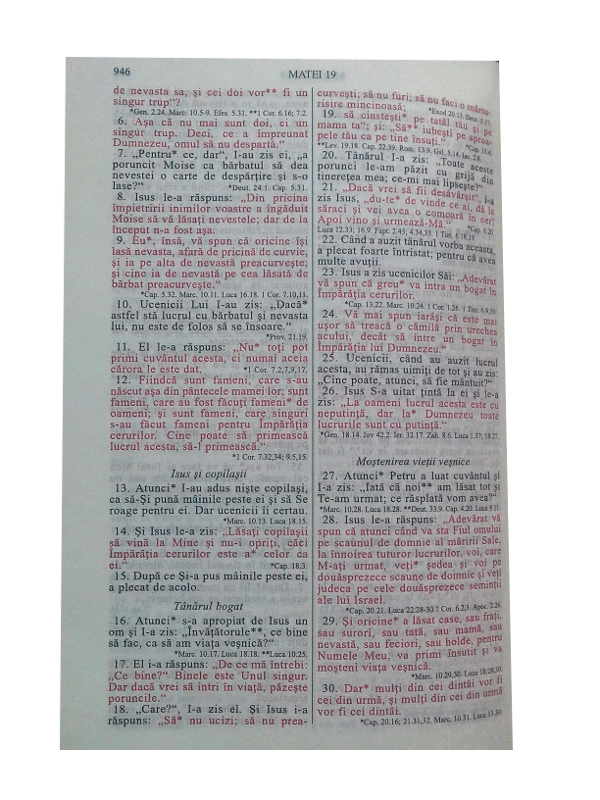 946
MATEI 19
de nevasta sa, şi cei doi vor** fi un
singur trup“?
*Gen. 2.24. Marc. 10.5-9. Efen. 5.31. **1 Cor. 6.16; 7.2.
6. Aşa că nu mai sunt doi, ci un
singur trup. Deci, ce a împreunat
Dumnezeu, omul să nu despartă.“
7. „Pentru* ce, dar“, I-au zis ei, „a
poruncit Moise ca bărbatul să dea
nevestei o carte de despărţire şi s-o
lase?“
*Deut. 24.1. Cap. 5.31.
8. Isus le-a răspuns: „Din pricina
împietririi inimilor voastre a îngăduit
Moise să vă lăsaţi nevestele; dar de la
început n-a fost aşa.
9. Eu*, însă, vă spun că oricine îşi
lasă nevasta, afară de pricină de curvie,
şi ia pe alta de nevastă preacurveşte;
şi cine ia de nevastă pe cea lăsată de
bărbat preacurveşte.“
*Cap. 5.32. Marc. 10.11. Luca 16.18. 1 Cor. 7.10,11.
10. Ucenicii Lui I-au zis: „Dacă*
astfel stă lucrul cu bărbatul şi nevasta
lui, nu este de folos să se însoare.“
*Prov. 21.19.
11. El le-a răspuns: „Nu* toţi pot
primi cuvântul acesta, ci numai aceia
cărora le este dat.
*1 Cor. 7.2,7,9,17.
12. Fiindcă sunt fameni, care s-au
născut aşa din pântecele mamei lor; sunt
fameni, care au fost făcuţi fameni* de
oameni; şi sunt fameni, care singuri
s-au făcut fameni pentru Împărăţia
cerurilor. Cine poate să primească
lucrul acesta, să-l primească.“
*1 Cor. 7.32,34; 9.5,15.
Isus şi copilaşii
13. Atunci* I-au adus nişte copilaşi,
ca să-Şi pună mâinile peste ei şi să Se
roage pentru ei. Dar ucenicii îi certau.
*Marc. 10.13. Luca 18.15.
14. Şi Isus le-a zis: „Lăsaţi copilaşii
să vină la Mine şi nu-i opriţi, căci
Împărăţia cerurilor este a* celor ca
ei.“
*Cap. 18.3.
15. După ce Şi-a pus mâinile peste ei,
a plecat de acolo.
Tânărul bogat
16. Atunci* s-a apropiat de Isus un
om şi I-a zis: „Învăţătorule**, ce bine
să fac, ca să am viaţa veşnică?“
*Marc. 10.17. Luca 18.18. **Luca 10.25.
17. El i-a răspuns: „De ce mă întrebi:
„Ce bine?“ Binele este Unul singur.
Dar dacă vrei să intri în viaţă, păzeşte
poruncile.“
18. „Care?“, I-a zis el. Şi Isus i-a
răspuns: „Să* nu ucizi; să nu prea-
curveşti; să nu furi; să nu faci o mărtu-
risire mincinoasă;
*Exod 20.13. Deut. 5.17.
19. să cinsteşti* pe tatăl tău şi pe
mama ta“; şi: „Să** iubeşti pe aproa-
pele tău ca pe tine însuţi.“
*Cap. 15.4.
**Lev. 19.18. Cap. 22.39. Rom. 13.9. Gal. 5.14. Iac. 2.8.
20. Tânărul I-a zis: „Toate aceste
porunci le-am păzit cu grijă din
tinereţea mea; ce-mi mai lipseşte?“
21. „Dacă vrei să fii desăvârşit“, i-a
zis Isus, „du-te* de vinde ce ai, dă la
săraci şi vei avea o comoară în cer!
Apoi vino şi urmează-Mă.“
*Cap. 6.20.
Luca 12.33; 16.9. Fapt. 2.45; 4.34,35. 1 Tim. 6.18,19.
22. Când a auzit tânărul vorba aceasta,
a plecat foarte întristat; pentru că avea
multe avuţii.
23. Isus a zis ucenicilor Săi: „Adevărat
vă spun că greu* va intra un bogat în
Împărăţia cerurilor.
*Cap. 13.22. Marc. 10.24. 1 Cor. 1.26. 1 Tim. 6.9,10.
24. Vă mai spun iarăşi că este mai
uşor să treacă o cămilă prin urechea
acului, decât să intre un bogat în
Împărăţia lui Dumnezeu.“
25. Ucenicii, când au auzit lucrul
acesta, au rămas uimiţi de tot şi au zis:
„Cine poate, atunci, să fie mântuit?“
26. Isus S-a uitat ţintă la ei şi le-a
zis: „La oameni lucrul acesta este cu
neputinţă, dar la* Dumnezeu toate
lucrurile sunt cu putinţă.“
*Gen. 18.14. Iov 42.2. Ier. 32.17. Zah. 8.6. Luca 1.37; 18.27.
Moştenirea vieţii veşnice
27. Atunci* Petru a luat cuvântul şi
I-a zis: „Iată că noi** am lăsat tot şi
Te-am urmat; ce răsplată vom avea?“
*Marc. 10.28. Luca 18.28. **Deut. 33.9. Cap. 4.20. Luca 5.11.
28. Isus le-a răspuns: „Adevărat vă
spun că atunci când va sta Fiul omului
pe scaunul de domnie al măririi Sale,
la înnoirea tuturor lucrurilor, voi, care
M-aţi urmat, veţi* şedea şi voi pe
douăsprezece scaune de domnie şi veţi
judeca pe cele douăsprezece seminţii
ale lui Israel.
*Cap. 20.21. Luca 22.28-30.1 Cor. 6.2,3. Apoc. 2.26.
29. Şi oricine* a lăsat case, sau fraţi,
sau surori, sau tată, sau mamă, sau
nevastă, sau feciori, sau holde, pentru
Numele Meu, va primi însutit şi va
moşteni viaţa veşnică.
*Marc. 10.29,30. Luca 18.29,30.
30. Dar* mulţi din cei dintâi vor fi
cei din urmă, şi mulţi din cei din urmă
vor fi cei dintâi.
*Cap. 20.16; 21.31,32. Marc. 10.31. Luca 13.30.